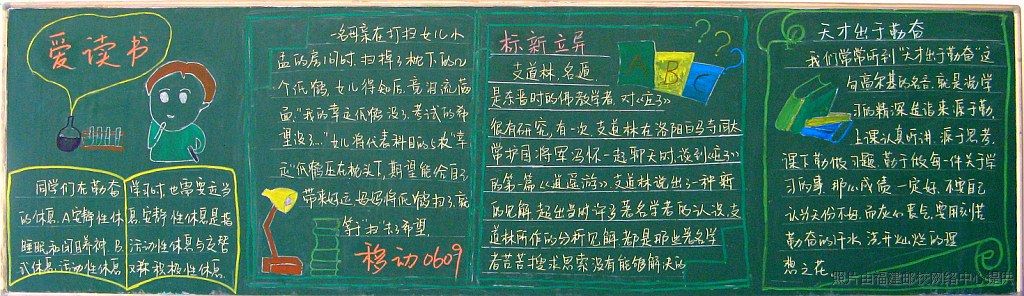 爱读书
同学们在勤奋
学习时,也需要适当
的休息。A安静性休
息,安静性休息是指
睡眠和闭目养神。B
活动性休息
活动性休息与交替
又称被极性休息。
一名母亲在打扫女儿水
晶的房间时,扫掉了枕下的
个纸鹤,女儿得知后,竟泪流满
面:"我的幸运纸鹤没了,考试的希
望没了..."女儿将代表科目的5枚幸
运纸鹤压在枕头下,期望能给自己
带来好运,妈妈将纸鹤扫了,就
等于"扫"去了希望
移动0609
标新立异
A B C
支道林,名遁,
是东晋时的佛教学者,对《庄子》
很有研究,有一次,支道林在洛阳白马寺同太
常护国将军冯怀一起聊天时,谈到《庄子》
的第一篇《逍遥游》,支道林说出了一种新
的见解,超出当时许多著名学者的认识,支
道林所作的分析见解,都是那些著名学
者苦苦搜求思索没有能够解决的
天才出于勤奋
我们常常听到"天才出于勤奋"这
句高尔基的名言,就是说学
习的精深造诣来源于勤,
上课认真听讲,源于思考,
课下勤做习题,勤于做每一件关于学
习的事,那么成绩一定好,不要自己
认为天份不如,而灰心丧气,要用刻苦
勤奋的汗水,浇开灿烂的理
想之花。
照片由福建邮校网络中心提供